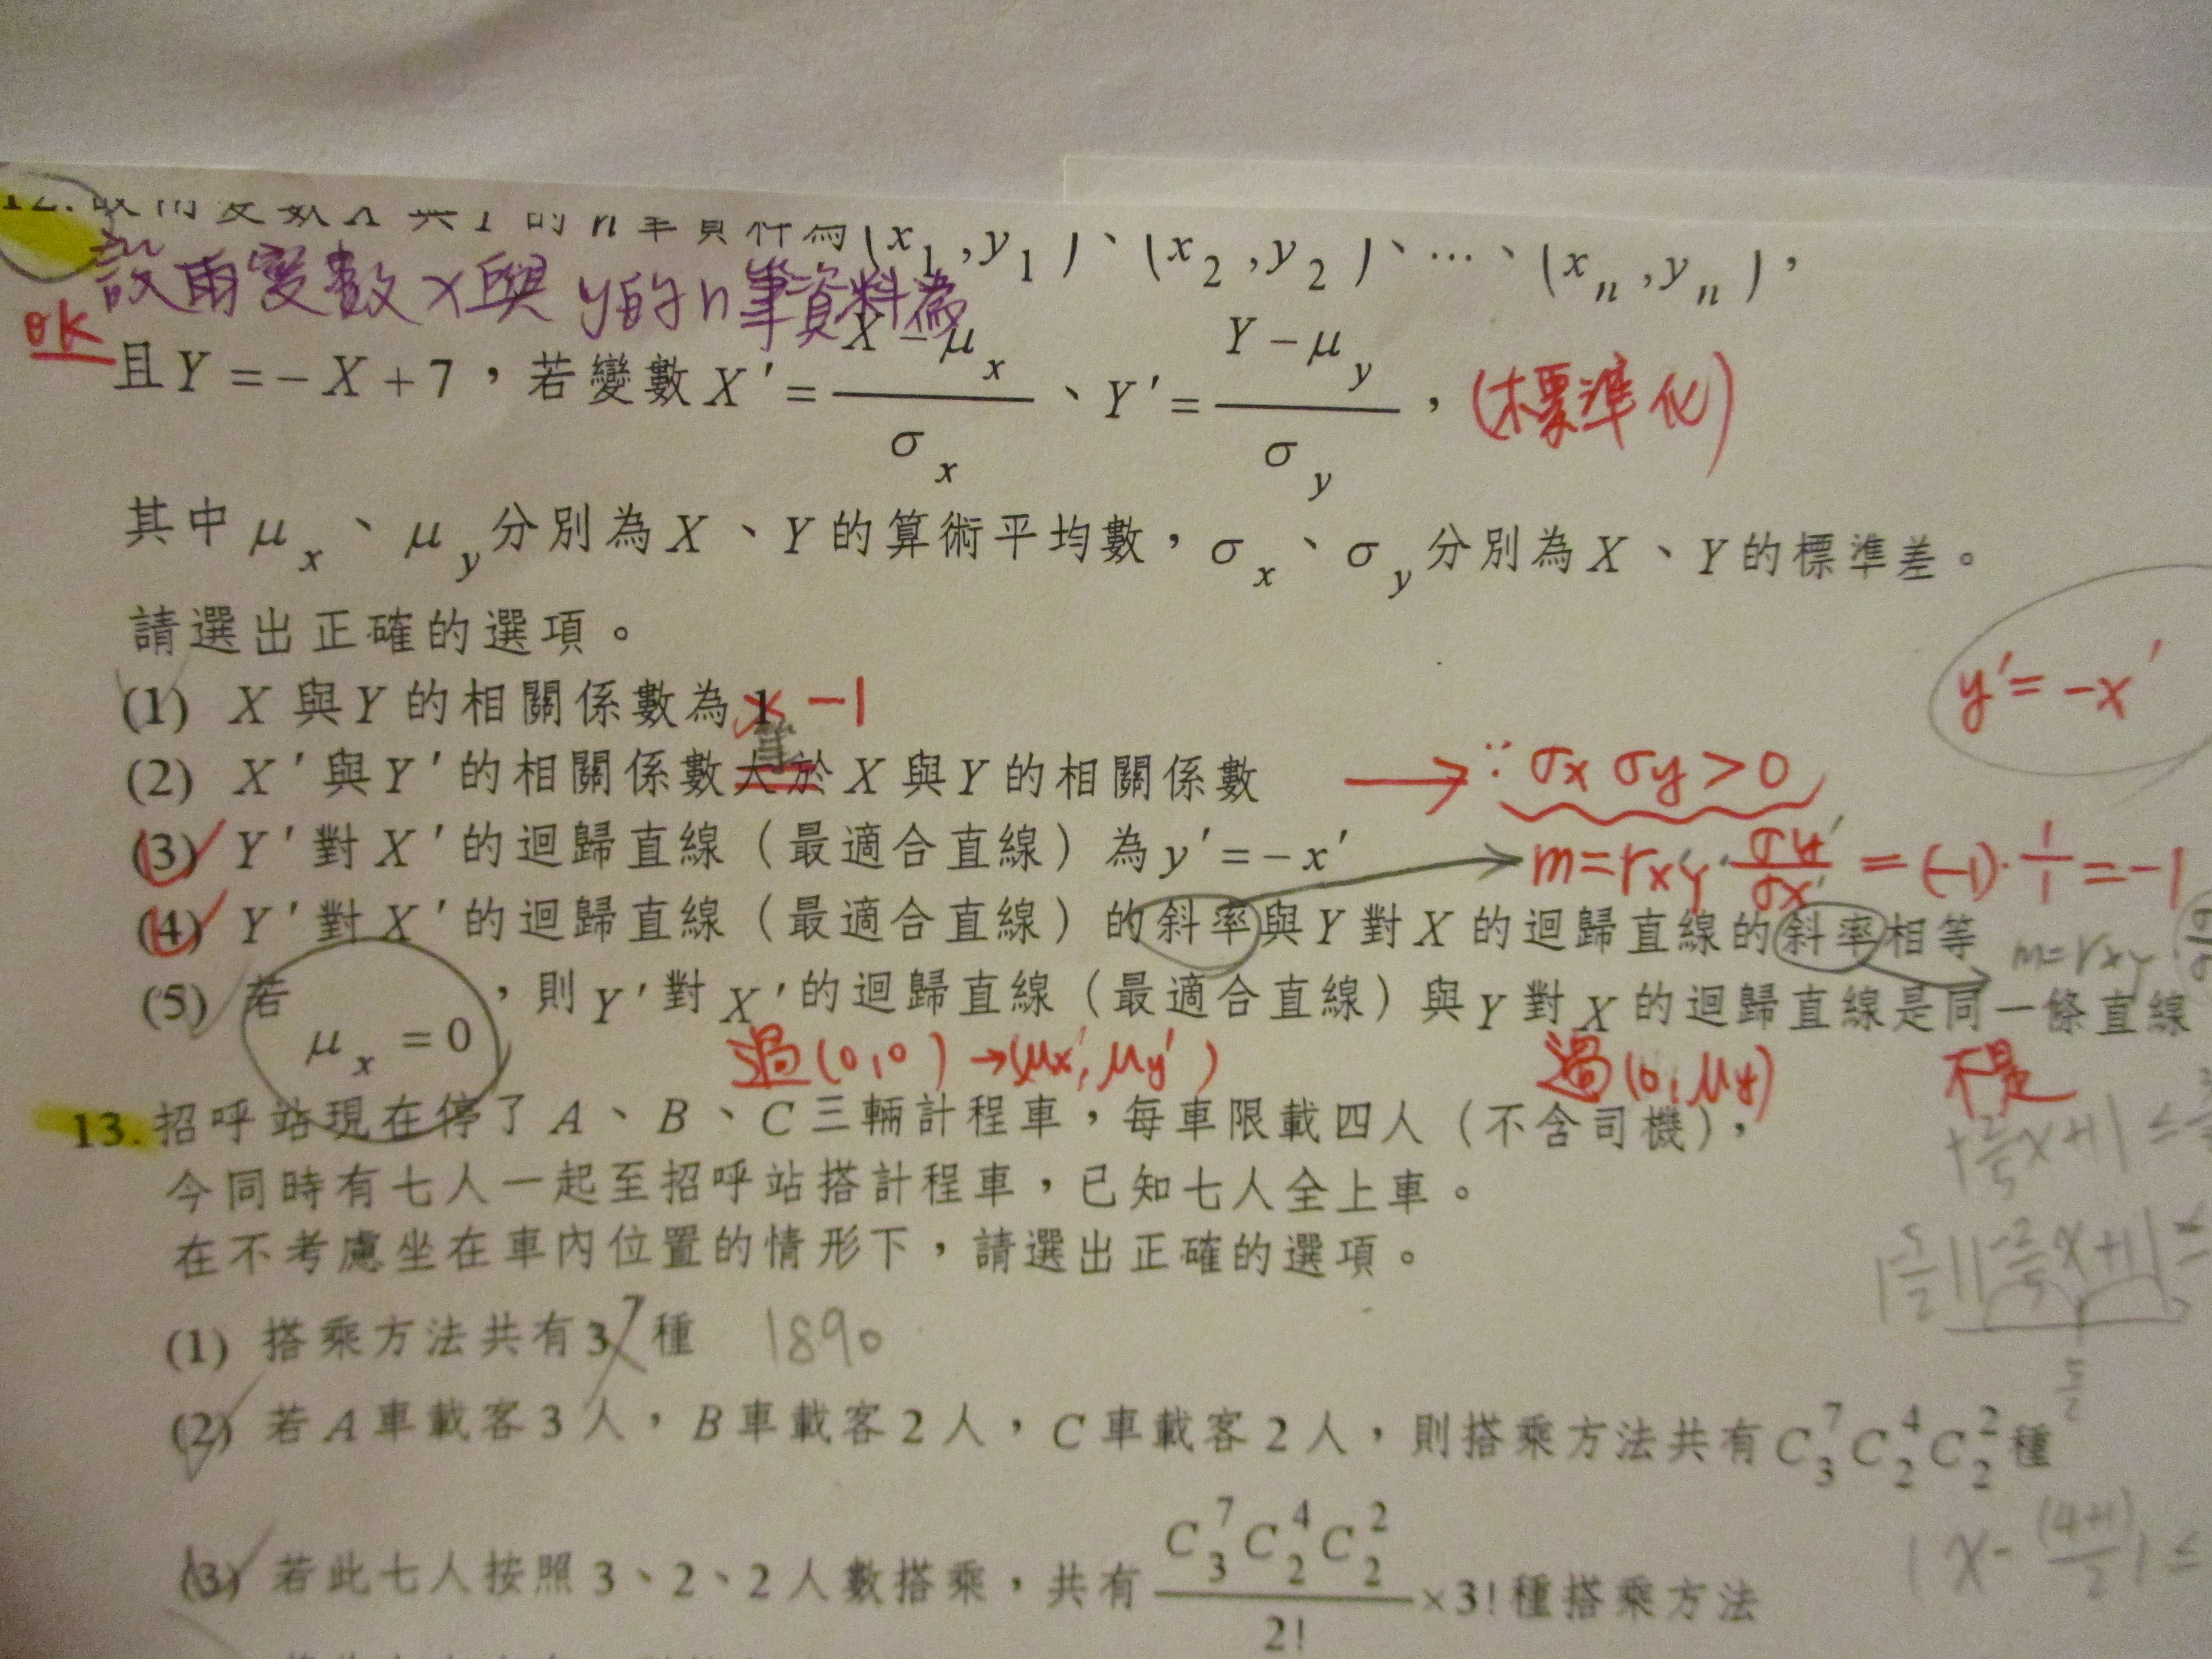 12. 設兩變數 X 與 Y 的 n 筆資料為 (x₁, y₁)、(x₂, y₂)、…、(xₙ, yₙ)，
設兩變數 x與 y的 n筆資料為
ok
且 Y = −X + 7，若變數 X′ = (X − μₓ)/σₓ、Y′ = (Y − μ_y)/σ_y， (標準化)
其中 μₓ、μ_y 分別為 X、Y 的算術平均數，σₓ、σ_y 分別為 X、Y 的標準差。
請選出正確的選項。
y′ = −x′
(1) X 與 Y 的相關係數為 1 −1
等
(2) X′ 與 Y′ 的相關係數大於 X 與 Y 的相關係數 → ∵ σx σy > 0
(3) Y′ 對 X′ 的迴歸直線（最適合直線）為 y′ = −x′ m = rx′y′ · σy′/σx′ = (−1) · 1/1 = −1
(4) Y′ 對 X′ 的迴歸直線（最適合直線）的斜率與 Y 對 X 的迴歸直線的斜率相等 m = rxy
(5) 若 μₓ = 0，則 Y′ 對 X′ 的迴歸直線（最適合直線）與 Y 對 X 的迴歸直線是同一條直線
過(0,0) → (μx′, μy′) 過(0, μy) 不是
13. 招呼站現在停了 A、B、C 三輛計程車，每車限載四人（不含司機），
今同時有七人一起至招呼站搭計程車，已知七人全上車。
在不考慮坐在車內位置的情形下，請選出正確的選項。
(1) 搭乘方法共有 3⁷ 種 1890
(2) 若 A 車載客 3 人，B 車載客 2 人，C 車載客 2 人，則搭乘方法共有 C⁷₃ C⁴₂ C²₂ 種
(3) 若此七人按照 3、2、2 人數搭乘，共有 (C⁷₃ C⁴₂ C²₂)/2! × 3! 種搭乘方法
| x − (4+1)/2 | ≤